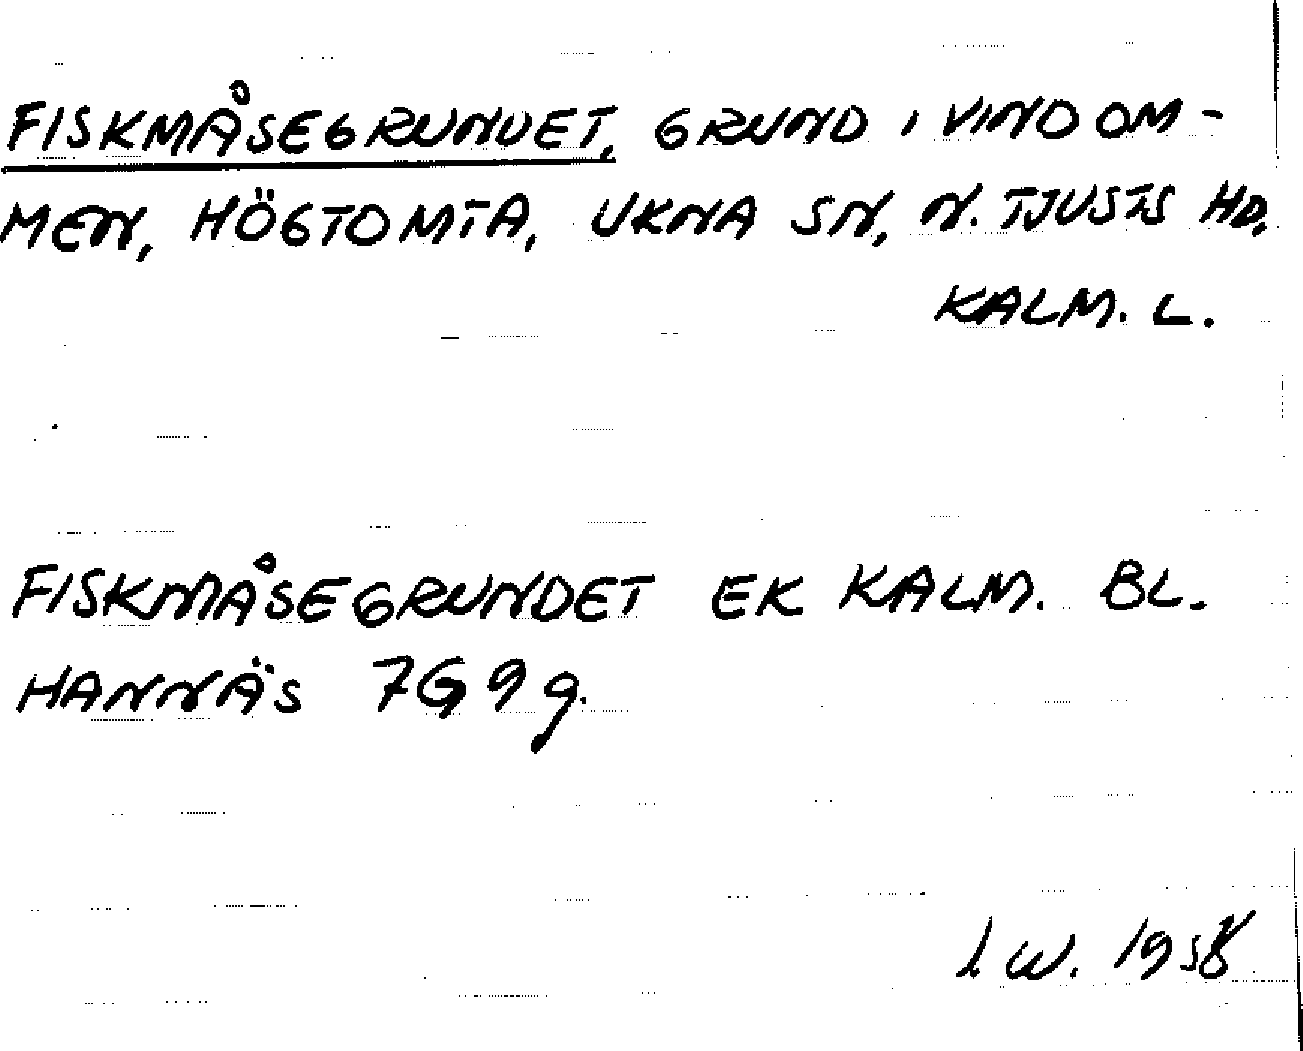 FISKMÅSEGRUNDET, GRUND I VINDOM-
MEN, HÖGTOMTA, UKNA SN, N. TJUSTS HD,
KALM. L.
FISKMÅSEGRUNDET EK KALM. BL.
HANNÄS 7G 9g.
I.W. 1958